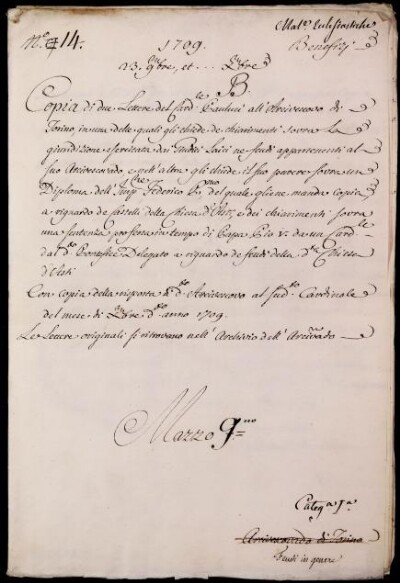 Mat.e Ecclesiastiche
N.o 14. 1709. Benefizj
23. 9bre, et ... Xbre
B
Copia di due Lettere del Card.le Paulucci all'Arcivescovo di
Torino, in una delle quali gli chiede de chiarimenti sovra la
giurisdizione esercitata dai Giudici Laici ne feudi appartenenti al
suo Arcivescovado, e nell'altra gli chiede il suo parere sovra un
Diploma dell'Imp.re Federico P.mo del quale gliene manda Copia
a riguardo de Castelli della Chiesa d'Asti, e dei chiarimenti sovra
una sentenza proferta in tempo di Papa Pio V. da un Card-
dal d.o Pontefice Delegato a riguardo de feudi della d.a Chiesa
d'Asti
Con copia della risposta di d.o Arcivescovo al sud.o Cardinale
del mese di Xbre d.o anno 1709.
Le Lettere originali si ritrovano nell'Archivio dell'Arciv.ado
Mazzo 9=no
Categ.a 1.a
Arcivescovado di Torino
Feudi in genere